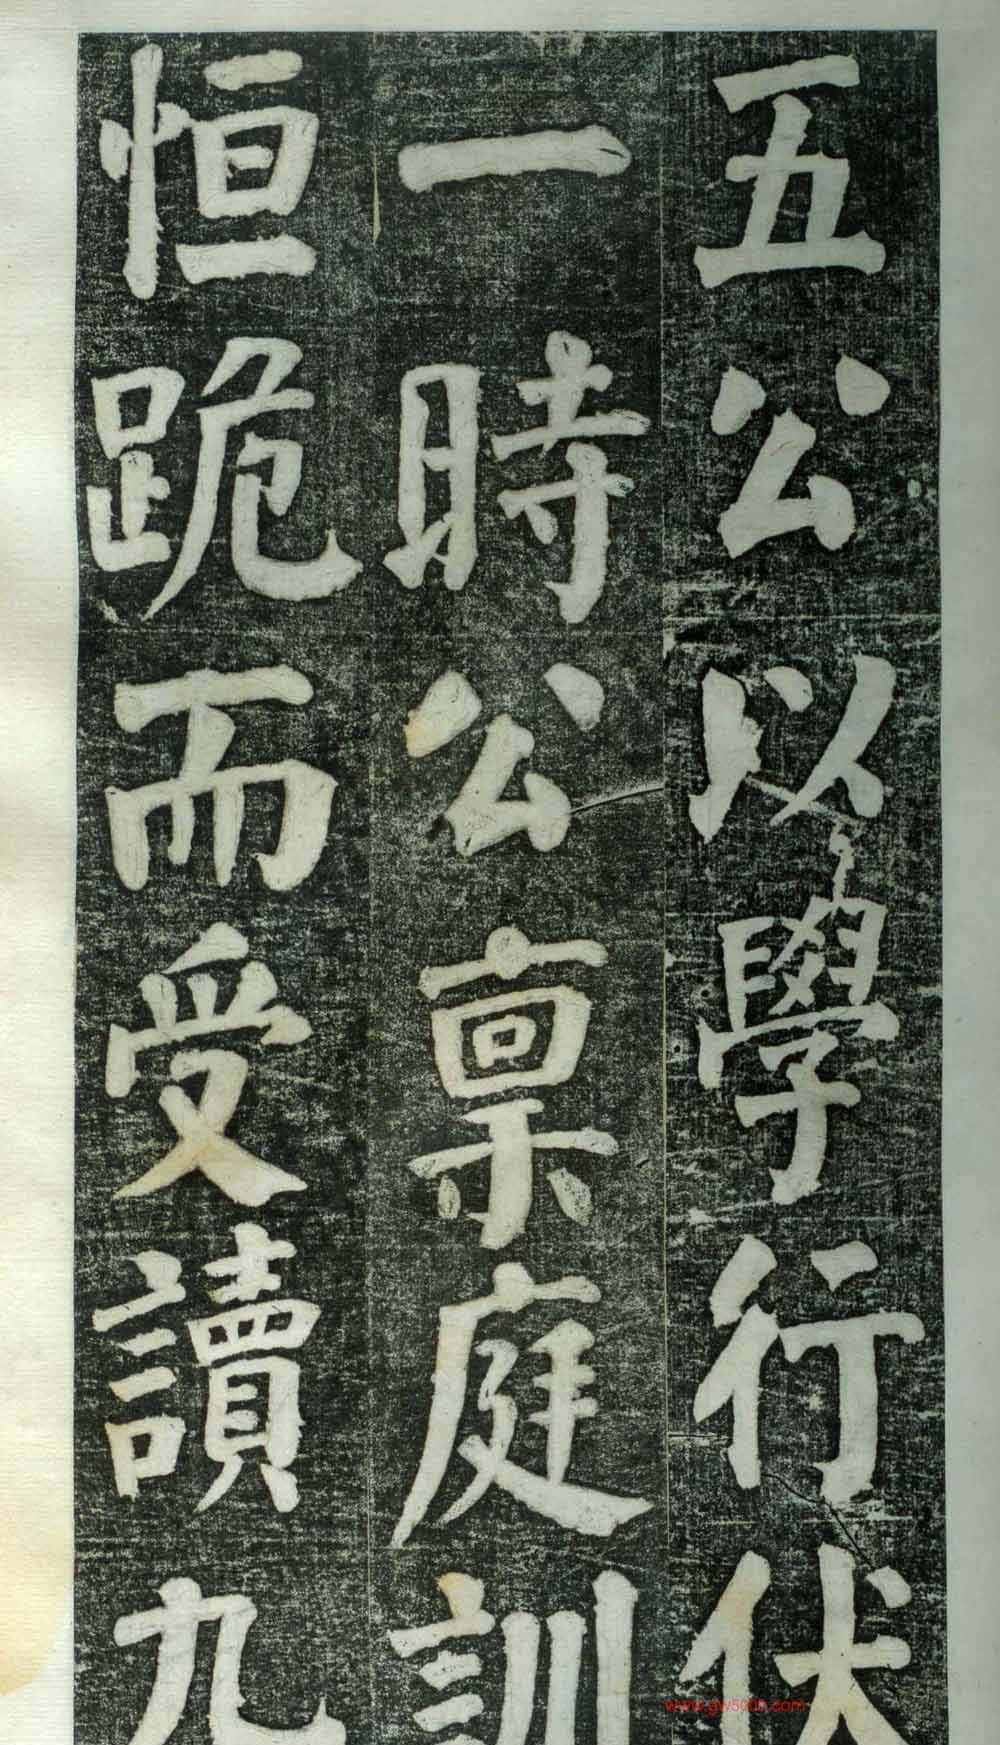 五公以學行伏
一時公禀庭訓
恒跪而受讀九
www.gw5000.com